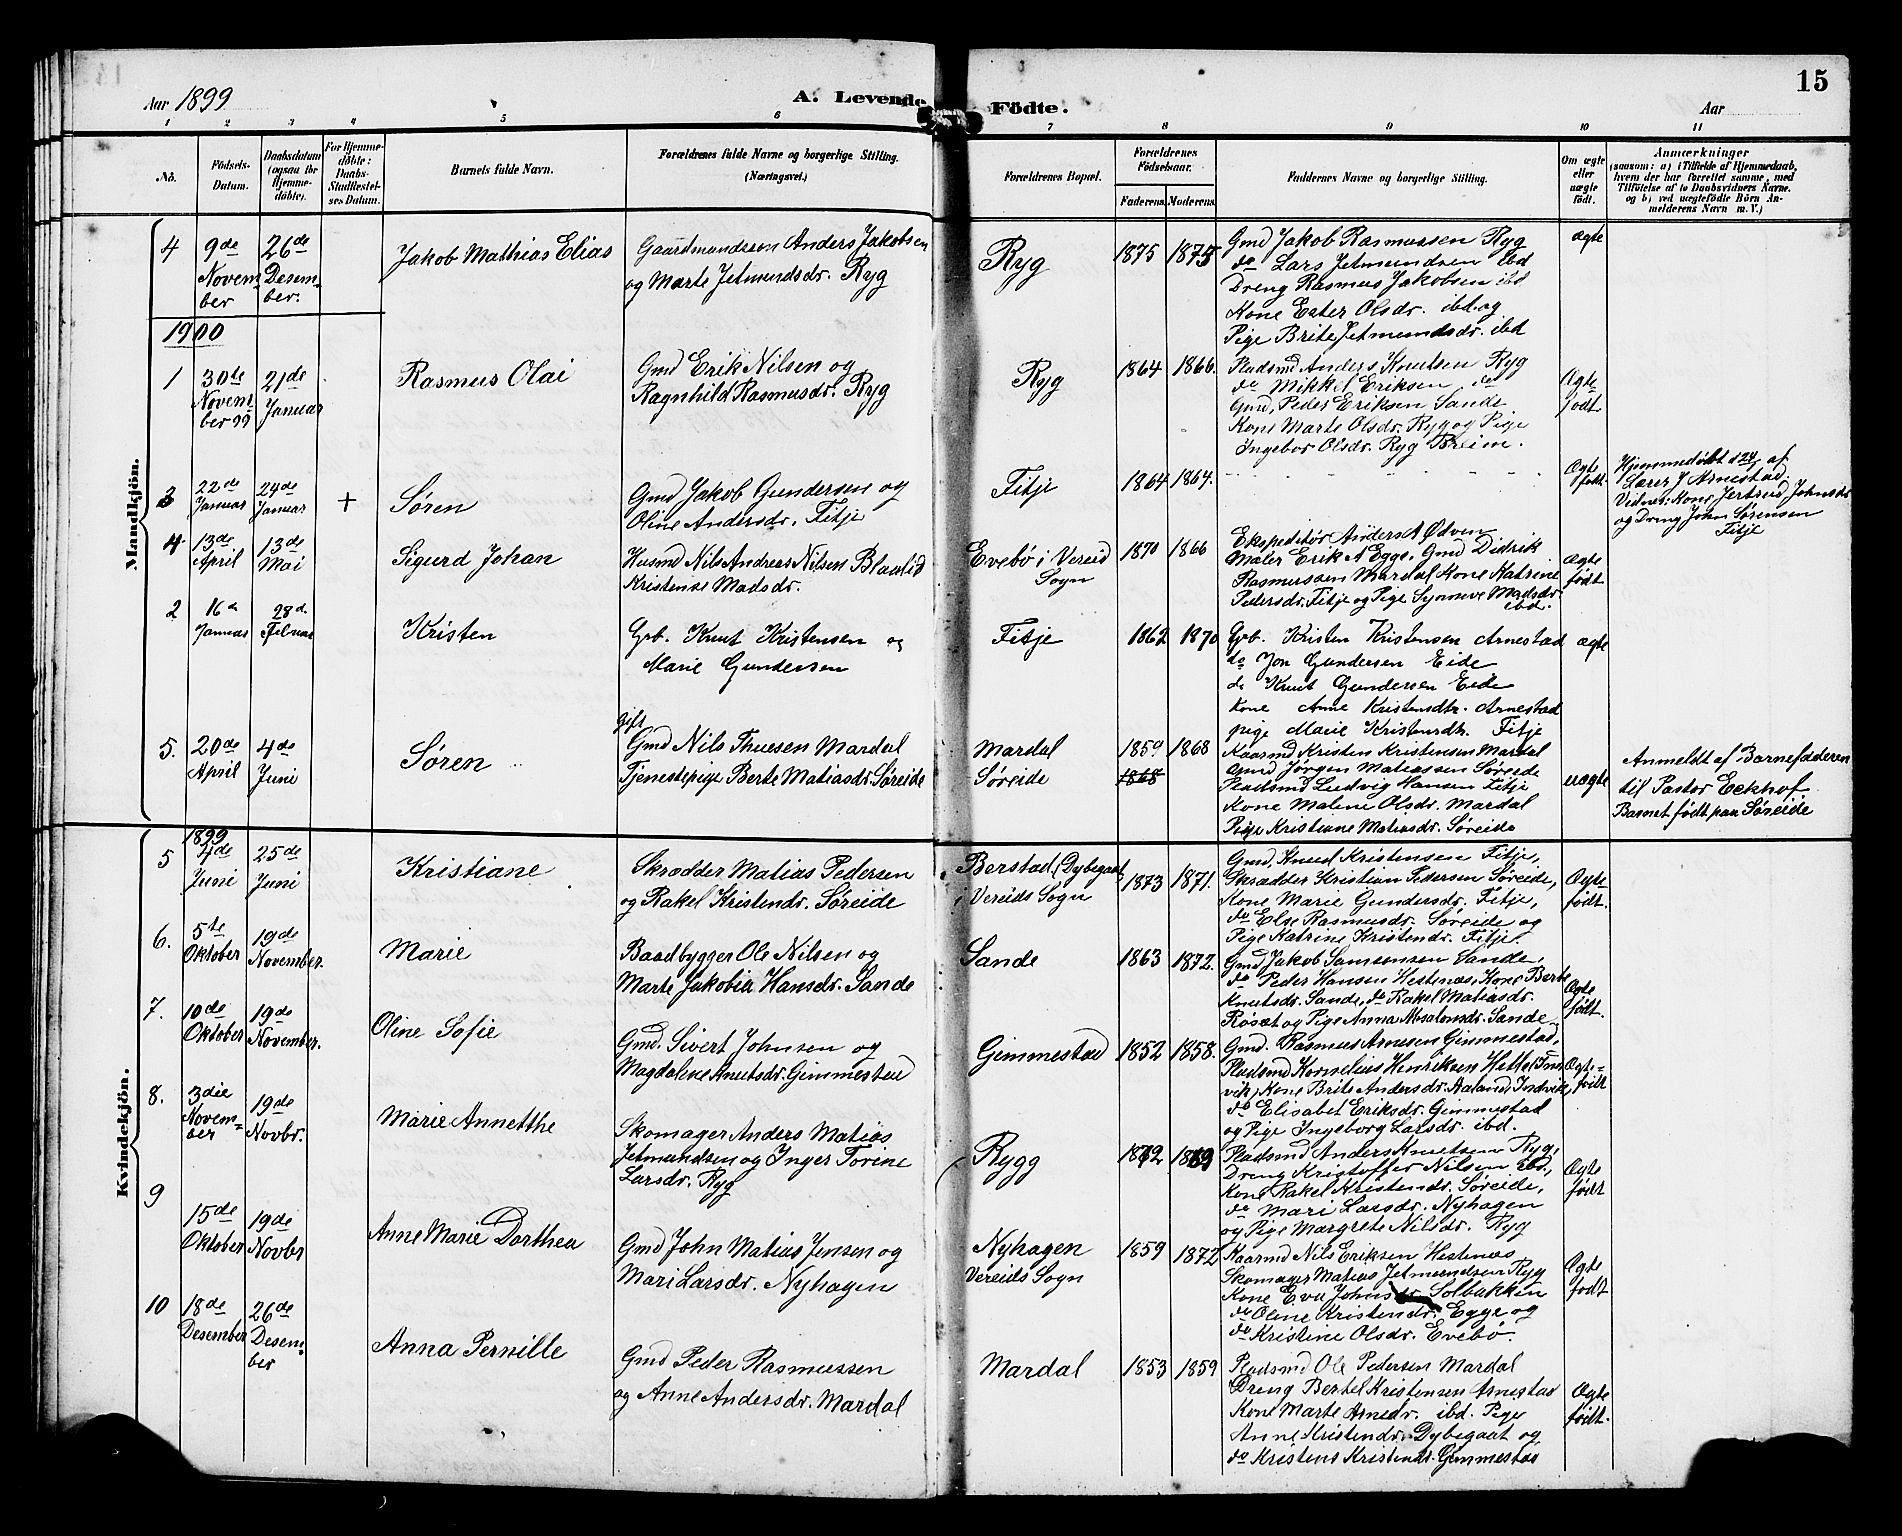 15
Aar 1899
A. Levende Födte.
Aar
1 2 3 4 5 6 7 8 9 10 11
No.
Födsels-
Datum.
Daabsdatum
(ogsaa for
Hjemme-
döbte).
For Hjemme-
döbte:
Daabs-
Stadfæstel-
ses Datum.
Barnets fulde Navn.
Forældrenes fulde Navne og borgerlige Stilling.
(Næringsvei.)
Forældrenes Bopæl.
Forældrenes
Födselsaar.
Faderens. Moderens.
Faddernes Navne og borgerlige Stilling.
Om ægte
eller
uægte
födt.
Anmærkninger
(saasom: a) i Tilfælde af Hjemmedaab,
hvem der har forrettet samme, med
Tilföielse af to Daabsvidners Navne.
og b) ved uægtefödte Börn An-
melderens Navn m. V.)
Mandkjön.
4
9de
Novem-
ber
26de
Desem-
ber.
Jakob Mathias Elias
Gaardmandssøn Anders Jakobsen
og Marte Jetmundsdr. Ryg
Ryg
1875
1875
Gmd Jakob Rasmussen Ryg
do Lars Jetmundsen ibd
Dreng Rasmus Jakobsen ibd
Kone Ester Olsdr. ibd. og
Pige Brite Jetmundsdr. ibd
ægte
1900
1
30te
Novem-
ber 99
21de
Januar
Rasmus Olai
Gmd Erik Nilsen og
Ragnhild Rasmusdr. Ryg
Ryg
1864
1866.
Pladsmd Anders Knutsen Ryg
do Mikkel Eriksen do
Gmd, Peder Eriksen Sande
Kone Marte Olsdr. Ryg og Pige
Ingebor Olsdr. Ryg Breim.
Ægte-
født.
3
22de
Januar
24de
Januar
+
Søren
Gmd Jakob Gundersen og
Oline Andersdr. Fitje
Fitje
1864
1864.
Ægte
født.
Hjemmedøbt d 24/1 af
Lærer J Arnestad.
Vidner: Kone Jertrud Johnsdr
og Dreng John Sørensen
Fitje
4
13de
April
13de
Mai
Sigurd Johan
Husmd Nils Andreas Nilsen Blaalid
Kristense Madsdr.
Evebö i Vereid
Sogn
1870
1866
Ekspeditör Anders A Ødven
Maler Erik A Egge, Gmd Didrik
Rasmussen Mardal Kone Katrine
Petersdr. Fitje og Pige Synneve Madsdr.
ibd.
Ægte
födt
2
16d
Januar
28d.
Februar
Kristen
Grb. Knut Kristensen og
Marie Gundersen
Fitje
1862
1870
Grb. Kristen Kristensen Arnestad
do Jon Gundersen Eide
do Knut Gundersen Eide
Kone Anne Kristensdtr. Arnestad
pige Marie Kristensdtr. Fitje
ægte
5.
20de
April
4de
Juni
Søren
gift
Gmd Nils Thuesen Mardal
Tjenestepige Berte Matiasdr. Søreide
Mardal
Søreide
1859
1868
1868
Kaarmd Kristen Kristensen Mardal
Gmd Jørgen Matiassen Søreide
Pladsmd Ludvig Hansen Fitje
Kone Maline Olsdr. Mardal
Pige Kristiane Matiasdr. Søreide
uægte
Anmeldt af Barnefaderen
til Pastor Eckhof
Barnet født paa Søreide
Kvindekjön.
1899
5
4de
Juni
25de
Juni
Kristiane
Skrædder Matias Pedersen
og Rakel Kristendr. Søreide
Berstad, Dybegaat
i Vereids Sogn
1873
1871.
Gmd, Knud Kristensen Fitje,
Skrædder Kristian Pedersen Søreide,
Kone Marie Gundersdr. Fitje,
do Else Rasmusdr. Søreide og
Pige Katrine Kristendr. Fitje.
Ægte-
født.
6.
5te
Oktober
19de
November.
Marie
Baadbygger Ole Nilsen og
Marte Jakobia Hansdr. Sande
Sande
1863
1872.
Gmd, Jakob Samsonsen Sande,
do Peder Hansen Hestenæs, Kone Berte
Knutsdr. Sande, do Rakel Matiasdr.
Røsæt og Pige Anna Absalonsdr. Sande
Ægte
født.
7.
10de
Oktober
19de
November.
Oline Sofie
Gmd. Sivert Johnsen og
Magdalene Knutsdr. Gimmestad
Gimmestad
1852
1858.
Gmd. Rasmus Arnesen Gimmestad,
Pladsmd Kornelius Henriksen Hetle, Ind-
vik, Kone Brite Andersdr. Aaland Indvik,
do Elisabet Eriksdr. Gimmestad
og Pige Ingeborg Larsdr. ibd.
Ægte-
født
8.
3die
Novem-
ber
19de
Novbr.
Marie Annetthe
Skomager Anders Matias
Jetmundsen og Inger Torine
Larsdr. Ryg
Rygg
1872
1869
Pladsmd Anders Knutsen Ryg,
Dreng Kristoffer Nilsen ibd,
Kone Rakel Kristendr. Søreide,
do Mari Larsdr. Nyhagen
og Pige Margrete Nilsdr. Ryg
Ægte
født
9
15de
Oktober
19de
Novbr
Anne Marie Dorthea
Gmd John Matias Jensen og
Mari Larsdr. Nyhagen
Nyhagen
Vereids Sogn
1859
1872
Kaarmd Nils Eriksen Hestenæs
Skomager Matias Jetmundsen Ryg
Kone Eva Johnsdr. Solbakken
do Oline Kristendr. Egge og
do Kristine Olsdr. Evebø.
Ægte
født
10
18de
Desember
26de
Desem-
ber
Anna Pernille
Gmd Peder Rasmussen
og Anne Andersdr. Mardal
Mardal
1853
1859
Pladsmd Ole Pedersen Mardal
Dreng Bertel Kristensen Arnestad
Kone Marte Arnedr. ibd. Pige
Anne Kristendr. Dybegaat og
do Kristens Kristendr. Gimmestad
Ægte
født.